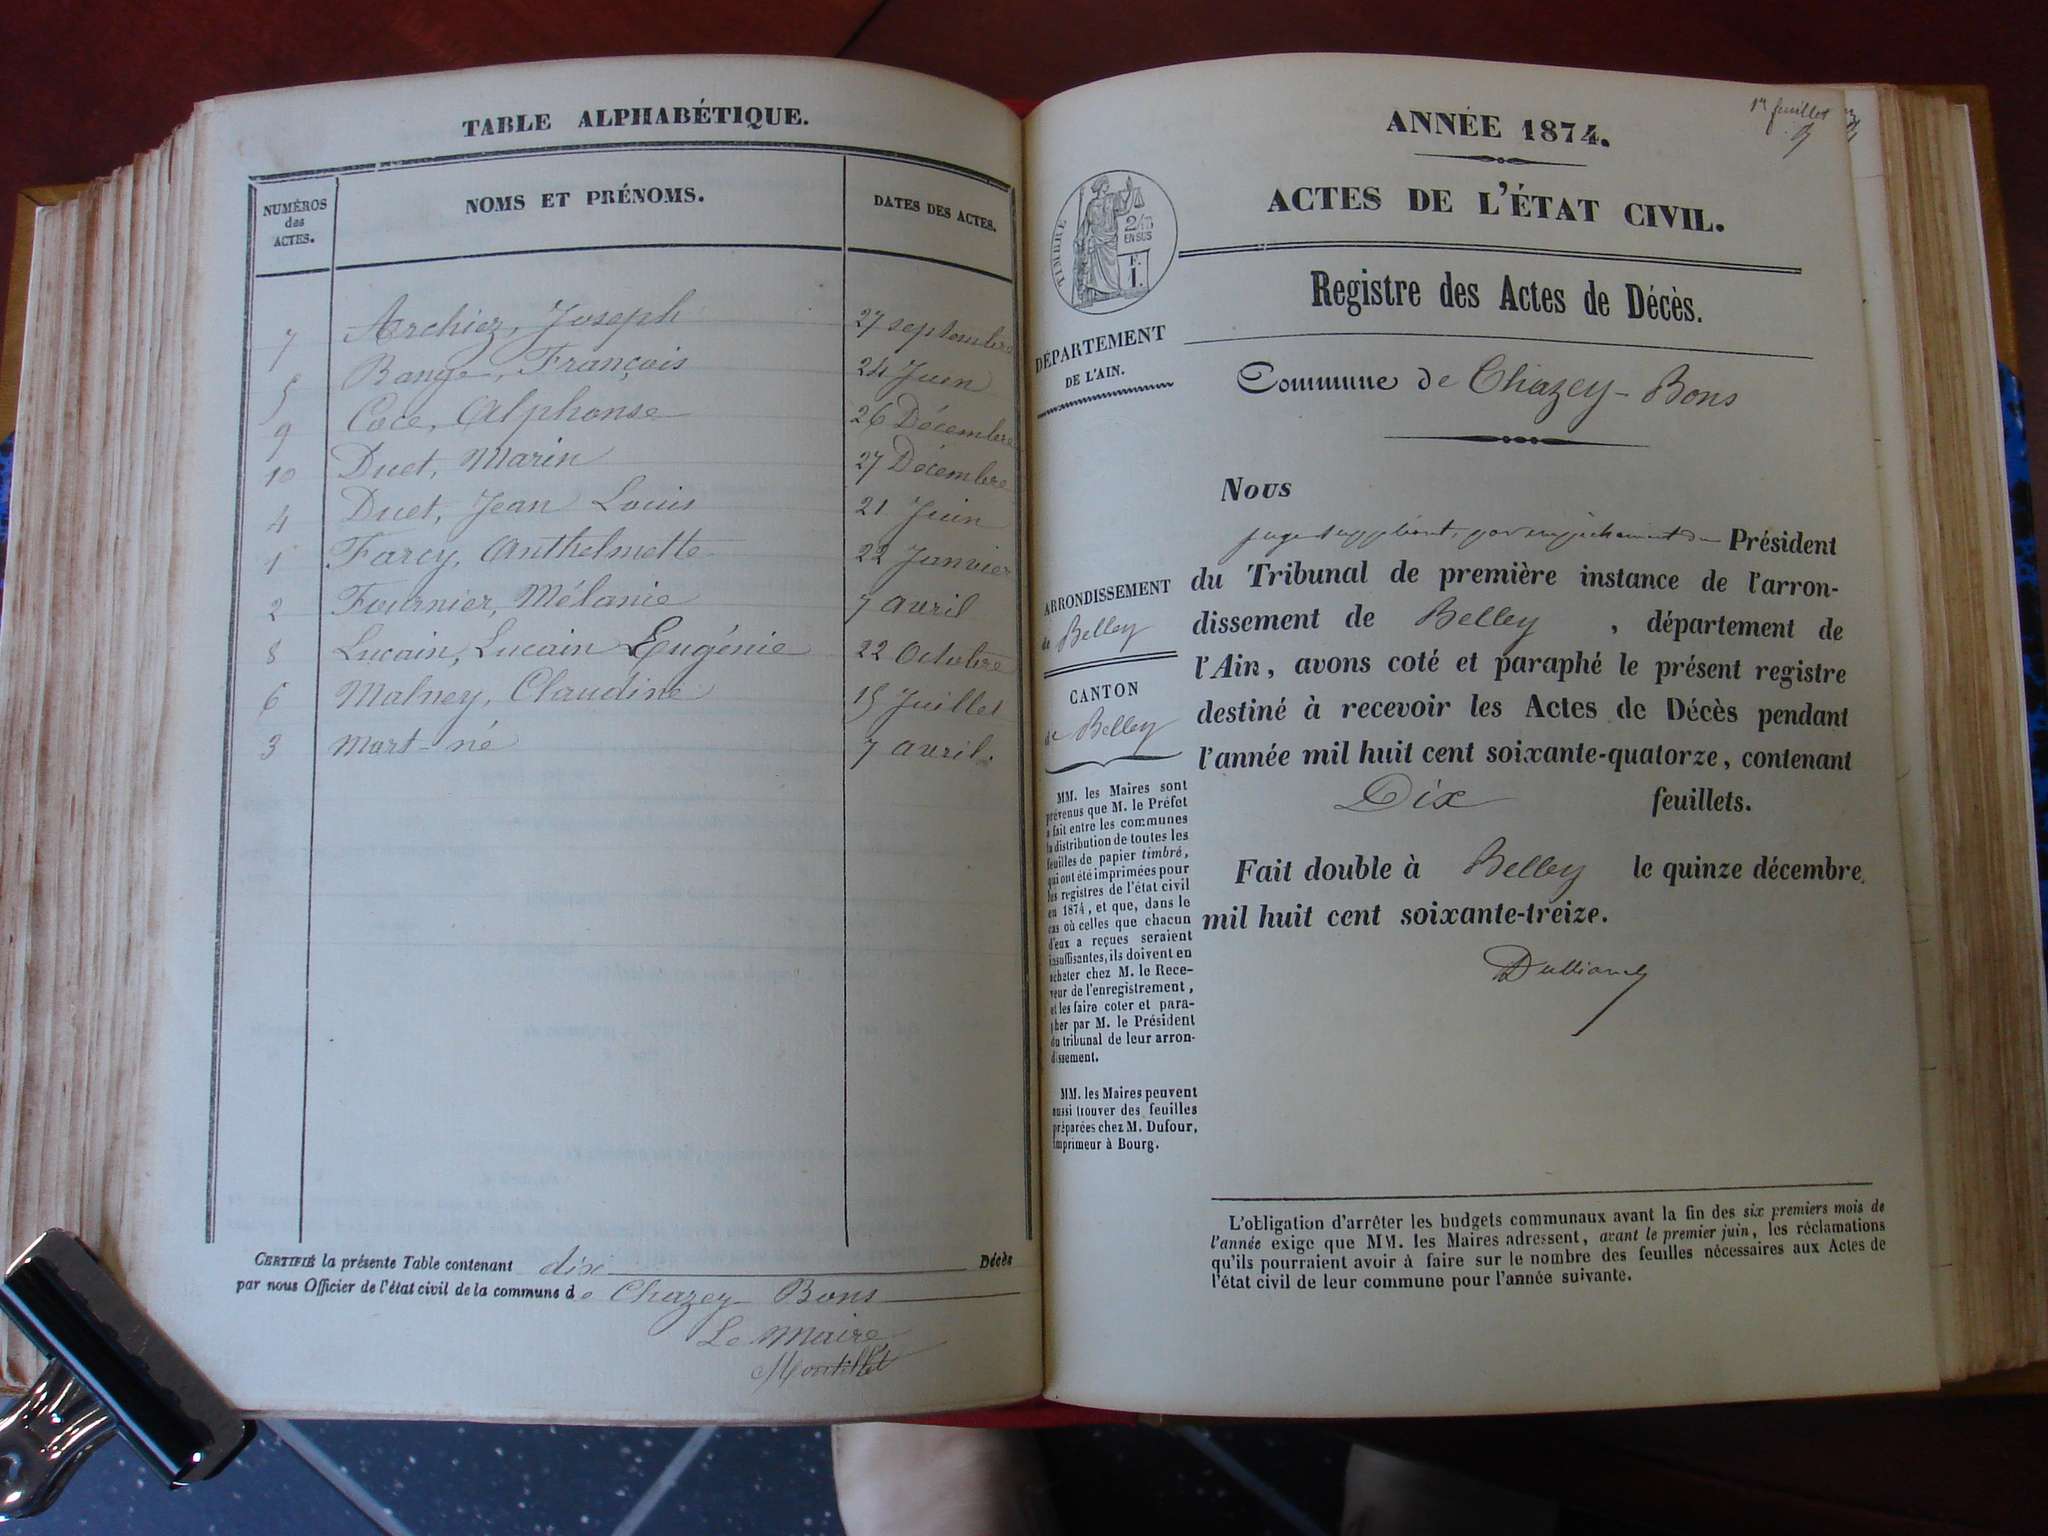 TABLE ALPHABÉTIQUE.
NUMÉROS
des
ACTES.
NOMS ET PRÉNOMS.
DATES DES ACTES.
7 Archiez, Joseph 27 septembre
5 Bange, François 24 Juin
9 Coce, Alphonse 26 Décembre
10 Duet, Marin 27 Décembre
4 Duet, Jean Louis 21 Juin
1 Farcy, Anthelmette 22 Janvier
2 Fournier, Mélanie 7 avril
8 Lucain, Lucain Eugénie 22 Octobre
6 Malney, Claudine 15 Juillet
3 Mort-né 7 avril.
CERTIFIÉ la présente Table contenant dix Décès
par nous Officier de l'état civil de la commune de Chazey Bons
Le Maire
Montillet
1er feuillet
ANNÉE 1874.
ACTES DE L'ÉTAT CIVIL.
TIMBRE
2/10
EN SUS
F.
1.
Registre des Actes de Décès.
DÉPARTEMENT
DE L'AIN.
Commune de Chazey-Bons
ARRONDISSEMENT
de Belley
CANTON
de Belley
MM. les Maires sont
prévenus que M. le Préfet
a fait entre les communes
la distribution de toutes les
feuilles de papier timbré,
qui ont été imprimées pour
les registres de l'état civil
en 1874, et que, dans le
cas où celles que chacun
d'eux a reçues seraient
insuffisantes, ils doivent en
acheter chez M. le Rece-
veur de l'enregistrement,
et les faire coter et para-
pher par M. le Président
du tribunal de leur arron-
dissement.
MM. les Maires peuvent
aussi trouver des feuilles
préparées chez M. Dufour,
imprimeur à Bourg.
Nous
juge suppléant, par empêchement du Président
du Tribunal de première instance de l'arron-
dissement de Belley, département de
l'Ain, avons coté et paraphé le présent registre
destiné à recevoir les Actes de Décès pendant
l'année mil huit cent soixante-quatorze, contenant
Dix feuillets.
Fait double à Belley le quinze décembre
mil huit cent soixante-treize.
L'obligation d'arrêter les budgets communaux avant la fin des six premiers mois de
l'année exige que MM. les Maires adressent, avant le premier juin, les réclamations
qu'ils pourraient avoir à faire sur le nombre des feuilles nécessaires aux Actes de
l'état civil de leur commune pour l'année suivante.